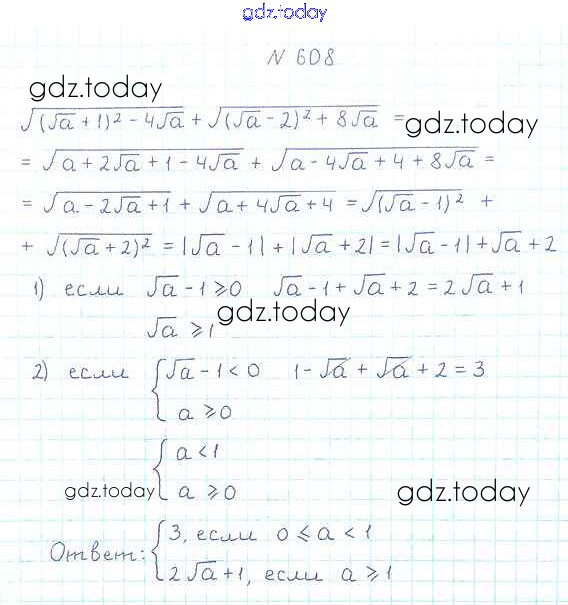 gdz.today
N 608
gdz.today
√((√a + 1)² - 4√a) + √((√a - 2)² + 8√a) =
gdz.today
= √(a + 2√a + 1 - 4√a) + √(a - 4√a + 4 + 8√a) =
= √(a - 2√a + 1) + √(a + 4√a + 4) = √((√a - 1)²) +
+ √((√a + 2)²) = |√a - 1| + |√a + 2| = |√a - 1| + √a + 2
1) если √a - 1 ⩾ 0 √a - 1 + √a + 2 = 2√a + 1
gdz.today
√a ⩾ 1
2) если { √a - 1 < 0 1 - √a + √a + 2 = 3
a ⩾ 0
{ a < 1
a ⩾ 0
gdz.today
gdz.today
Ответ: { 3, если 0 ⩽ a < 1
2√a + 1, если a ⩾ 1